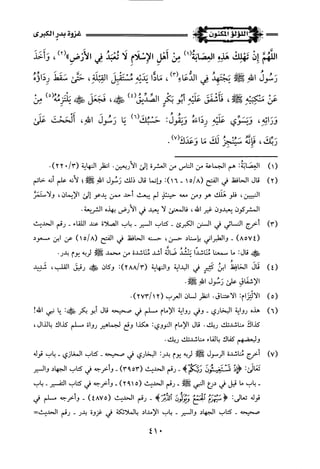 اللؤلؤ المكنون
غزوة بدر الكبرى
اللَّهُمَّ إِنْ تَهْلِكْ هَذِهِ العِصَابَةُ(١) مِنْ أَهْلِ الإِسْلَامِ لَا تُعْبَدُ فِي الأَرْضِ»(٢)، وَأَخَذَ
رَسُولُ اللهِ ﷺ يَجْتَهِدُ فِي الدُّعَاءِ(٣)، مَادًّا يَدَيْهِ مُسْتَقْبِلَ القِبْلَةِ، حَتَّى سَقَطَ رِدَاؤُهُ
مِنْ مَنْكِبَيْهِ ﷺ، فَأَشْفَقَ عَلَيْهِ أَبُو بَكْرٍ الصِّدِّيقُ(٤) ﷺ، فَجَعَلَ يَلْتَزِمُهُ(٥) مِنْ
وَرَائِهِ، وَيُسَوِّي عَلَيْهِ رِدَاءَهُ وَيَقُولُ: حَسْبُكَ(٦) يَا رَسُولَ اللهِ، أَلْحَحْتَ عَلَى
رَبِّكَ، فَإِنَّهُ سَيُنْجِزُ لَكَ مَا وَعَدَكَ(٧)
(١) العِصَابَةُ: هم الجماعة من الناس من العشرة إلى الأربعين. انظر النهاية (٣/٢٢٠).
(٢) قال الحافظ في الفتح (٨/١٥ - ١٦): وإنما قال ذلك رسول الله ﷺ، لأنه علم أنه خاتم
النبيين، فلو هلك هو ومن معه حينئذٍ لم يبعث أحد ممن يدعو إلى الإيمان، ولاستمَرَّ
المشركون يعبدون غير الله، فالمعنى لا يعبد في الأرض بهذه الشريعة.
(٣) أخرج النسائي في السنن الكبرى - كتاب السير - باب الصلاة عند اللقاء - رقم الحديث
(٨٥٧٤) - والطبراني بإسناد حسن، حسنه الحافظ في الفتح (٨/١٥) عن ابن مسعود
ﷺ قال: ما سمعنا مُنَاشدًا يَنْشُدُ ضالَّةً أشد مُنَاشدة من محمد ﷺ لربه يوم بدر.
(٤) قَالَ الحَافِظُ ابنُ كَثِيرٍ في البداية والنهاية (٣/٢٨٨): وكان ﷺ رقيق القلب، شديد
الإشفاق على رسول الله ﷺ.
(٥) الالْتِزَام: الاعتناق. انظر لسان العرب (١٢/٢٧٣).
(٦) هذه رواية البخاري - وفي رواية الإمام مسلم في صحيحه قال أبو بكر ﷺ: يا نبي الله!
كذاك مناشدتك ربك. قال الإمام النووي: هكذا وقع لجماهير رواة مسلم كذاك بالذال،
ولبعضهم كفاك بالفاء مناشدتك ربك.
(٧) أخرج مُناشدة الرسول ﷺ لربه يوم بدر: البخاري في صحيحه - كتاب المغازي - باب قوله
تعالى: ﴿إِذْ تَسْتَغِيثُونَ رَبَّكُمْ﴾ - رقم الحديث (٣٩٥٣) - وأخرجه في كتاب الجهاد والسير
- باب ما قيل في درع النبي ﷺ - رقم الحديث (٢٩١٥) - وأخرجه في كتاب التفسير - باب
قوله تعالى: ﴿سَيُهْزَمُ الْجَمْعُ وَيُوَلُّونَ الدُّبُرَ﴾ - رقم الحديث (٤٨٧٥) - وأخرجه مسلم في
صحيحه - كتاب الجهاد والسير - باب الإمداد بالملائكة في غزوة بدر - رقم الحديث=
٤١٠